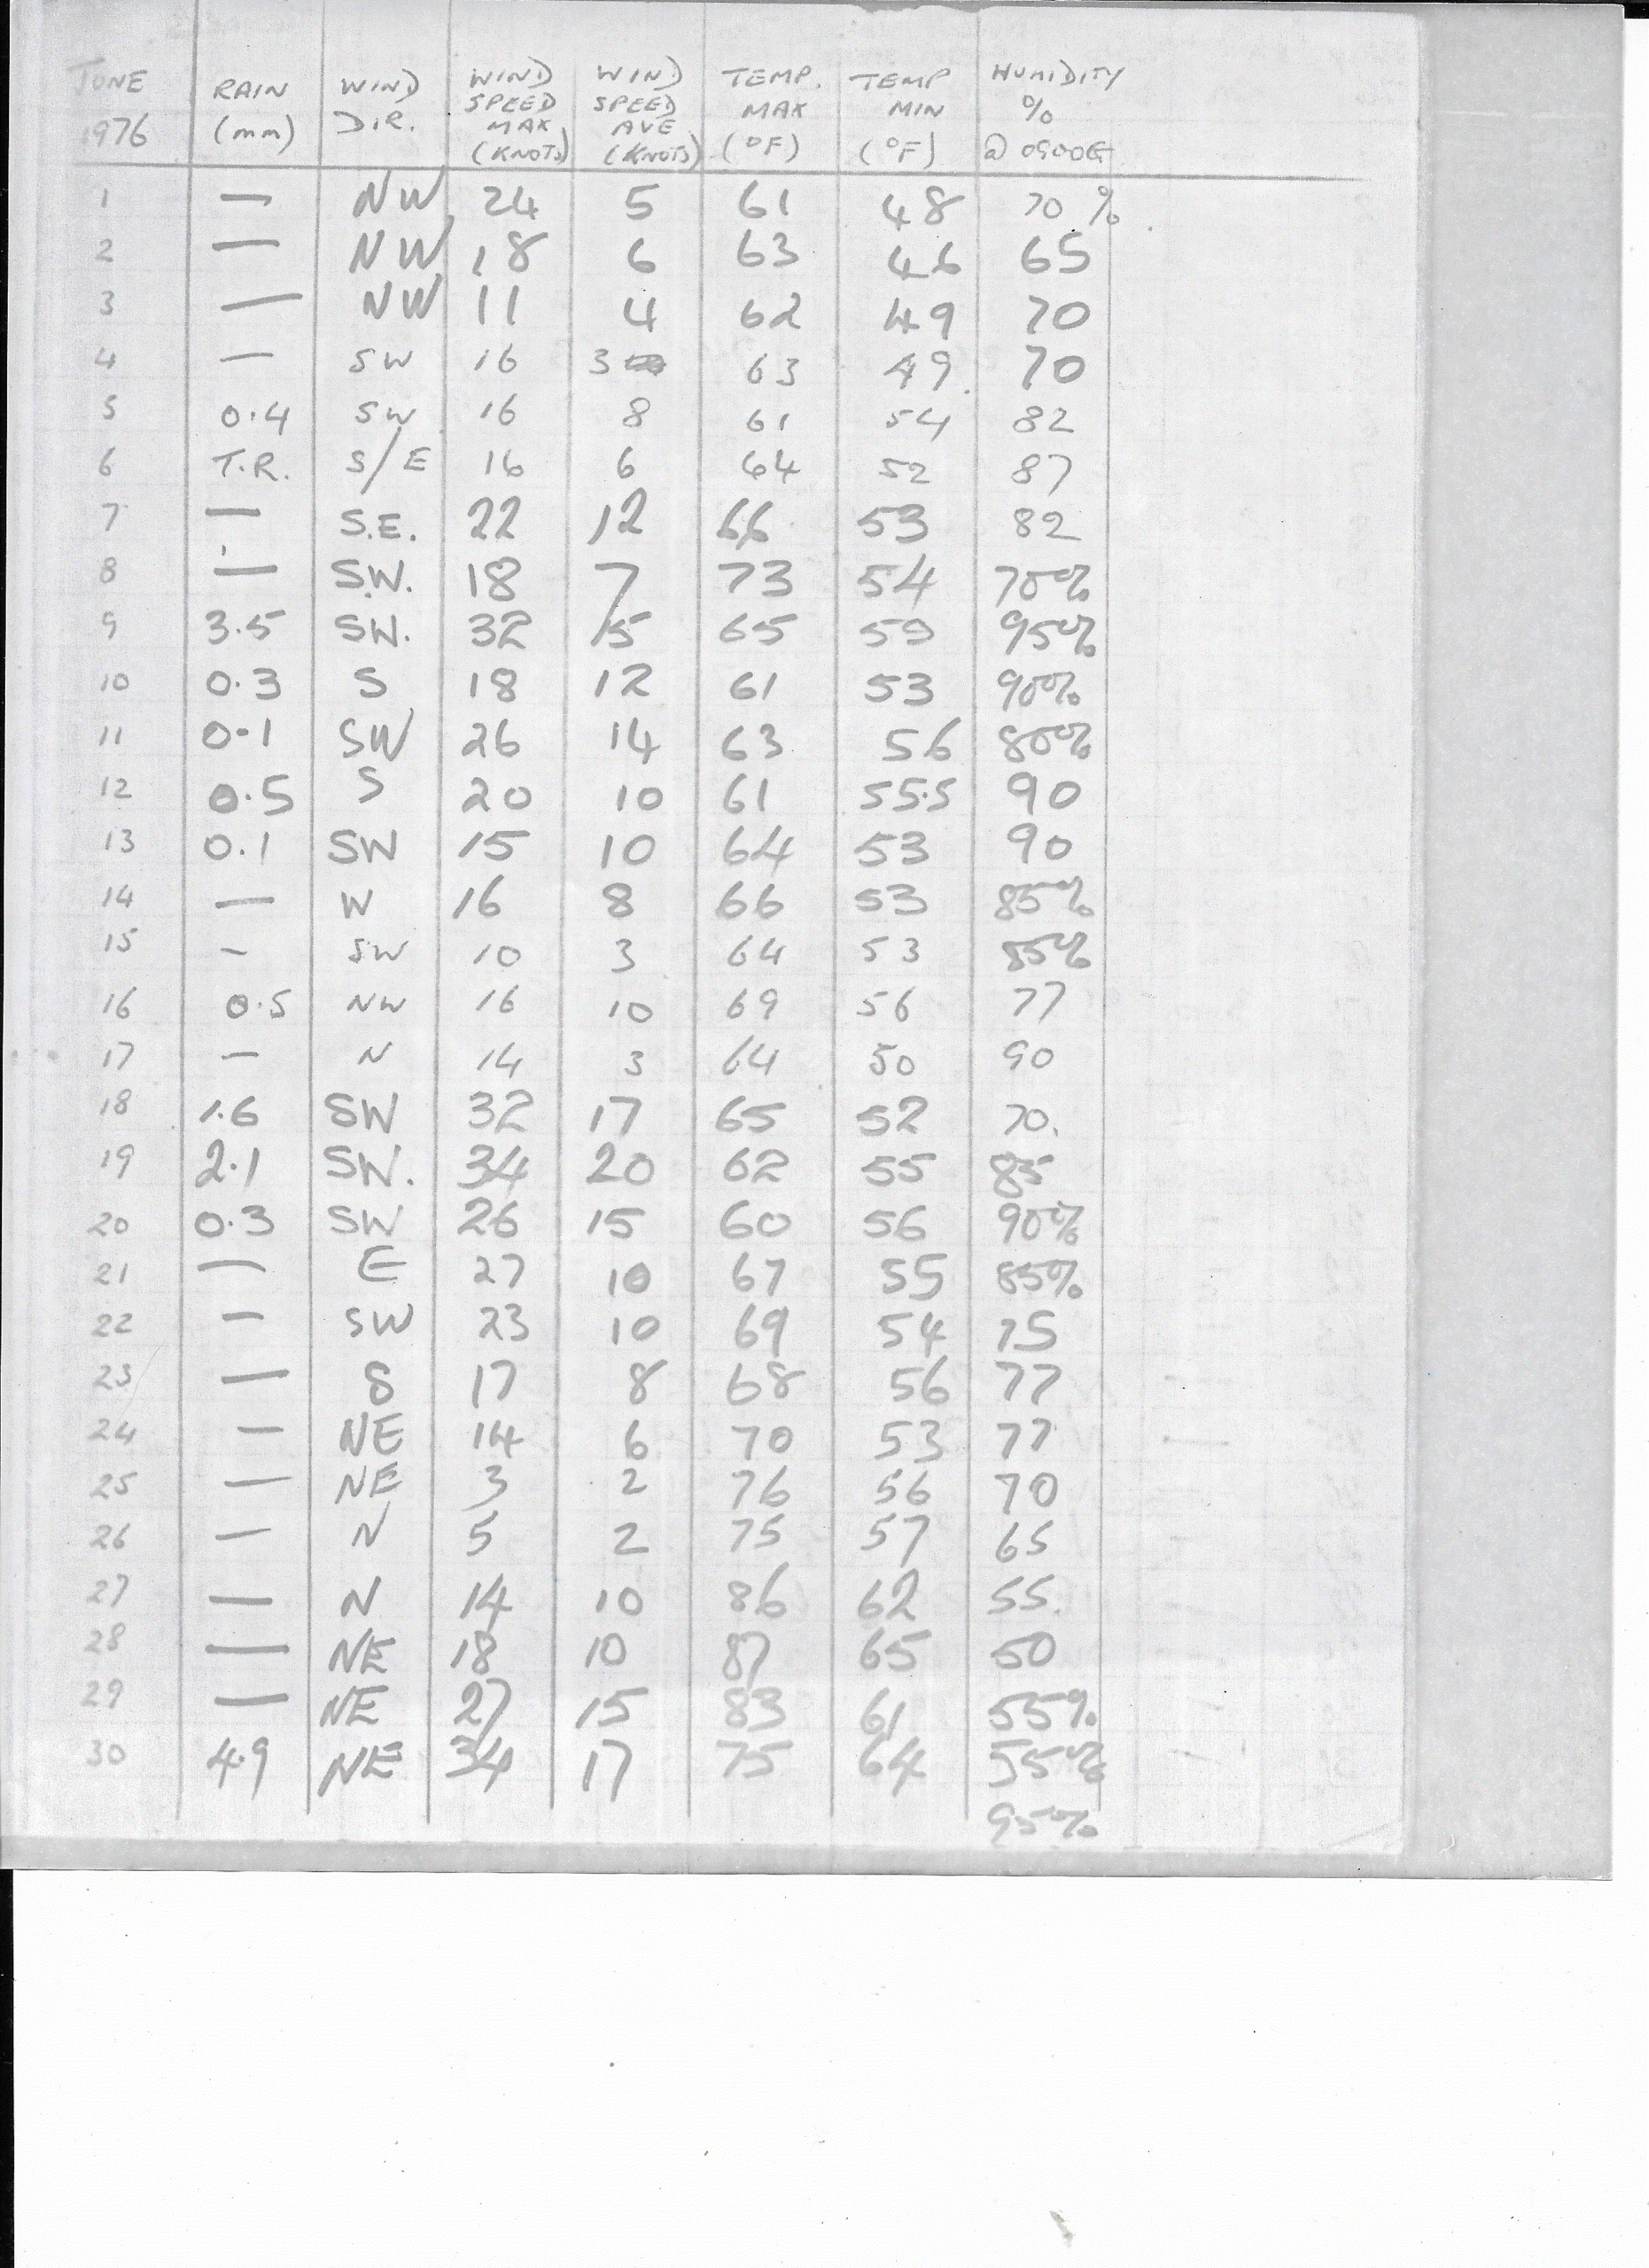 JUNE 1976 RAIN (mm) WIND DIR. WIND SPEED MAX (KNOTS) WIND SPEED AVE (KNOTS) TEMP. MAX (°F) TEMP MIN (°F) HUMIDITY % @ 0900G
1 — NW 24 5 61 48 70 %
2 — NW 18 6 63 46 65
3 — NW 11 4 62 49 70
4 — SW 16 3 63 49 70
5 0.4 SW 16 8 61 54 82
6 T.R. S/E 16 6 64 52 87
7 — S.E. 22 12 66 53 82
8 — S.W. 18 7 73 54 70%
9 3.5 SW. 32 15 65 59 95%
10 0.3 S 18 12 61 53 90%
11 0.1 SW 26 14 63 56 80%
12 0.5 S 20 10 61 55.5 90
13 0.1 SW 15 10 64 53 90
14 — W 16 8 66 53 85%
15 — SW 10 3 64 53 85%
16 0.5 NW 16 10 69 56 77
17 — N 14 3 64 50 90
18 1.6 SW 32 17 65 52 70.
19 2.1 SW. 34 20 62 55 85
20 0.3 SW 26 15 60 56 90%
21 — E 27 10 67 55 85%
22 — SW 23 10 69 54 75
23 — S 17 8 68 56 77
24 — NE 14 6 70 53 77
25 — NE 3 2 76 56 70
26 — N 5 2 75 57 65
27 — N 14 10 86 62 55.
28 — NE 18 10 87 65 50
29 — NE 27 15 83 61 55%
30 4.9 NE 34 17 75 64 55%
95%